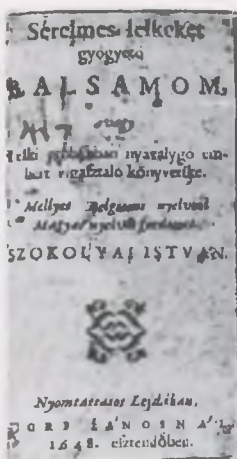 Sérelmes lelkeket
gyógyétó
BALSAMOM,
Avagy
lelki nyavalygo em-
vigasztaló könyvetske.
Mellyet Belgiumi nyelvből
Magyar nyelvre
SZOKOLYAI ISTVAN.
Nyomtattatot Lejdában,
1648. esztendőben.